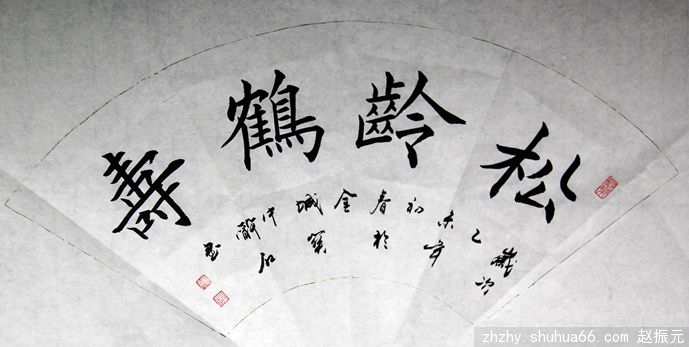 松齡鶴壽
歲次
乙
未年
初
春於
金
城
zhzhy.shuhua66.com 赵振元